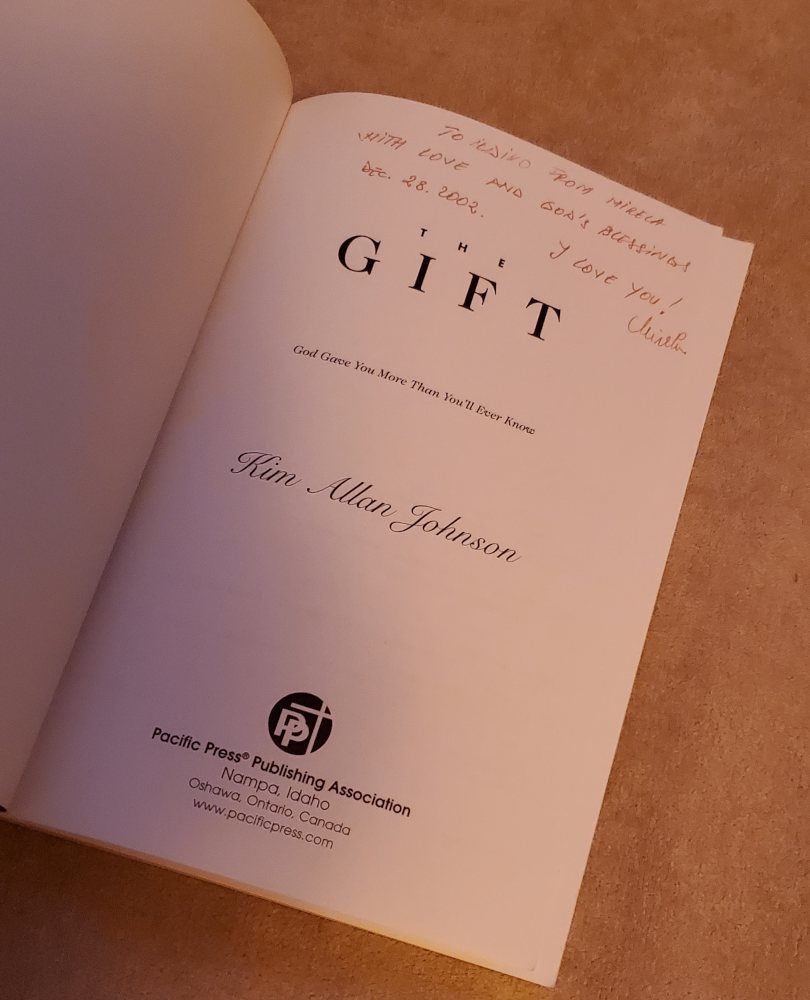 TO FROM MIRELA
WITH LOVE AND GOD'S BLESSINGS
DEC. 28. 2002.
I LOVE YOU!
THE
GIFT
God Gave You More Than You'll Ever Know
Kim Allan Johnson
Pacific Press® Publishing Association
Nampa, Idaho
Oshawa, Ontario, Canada
www.pacificpress.com